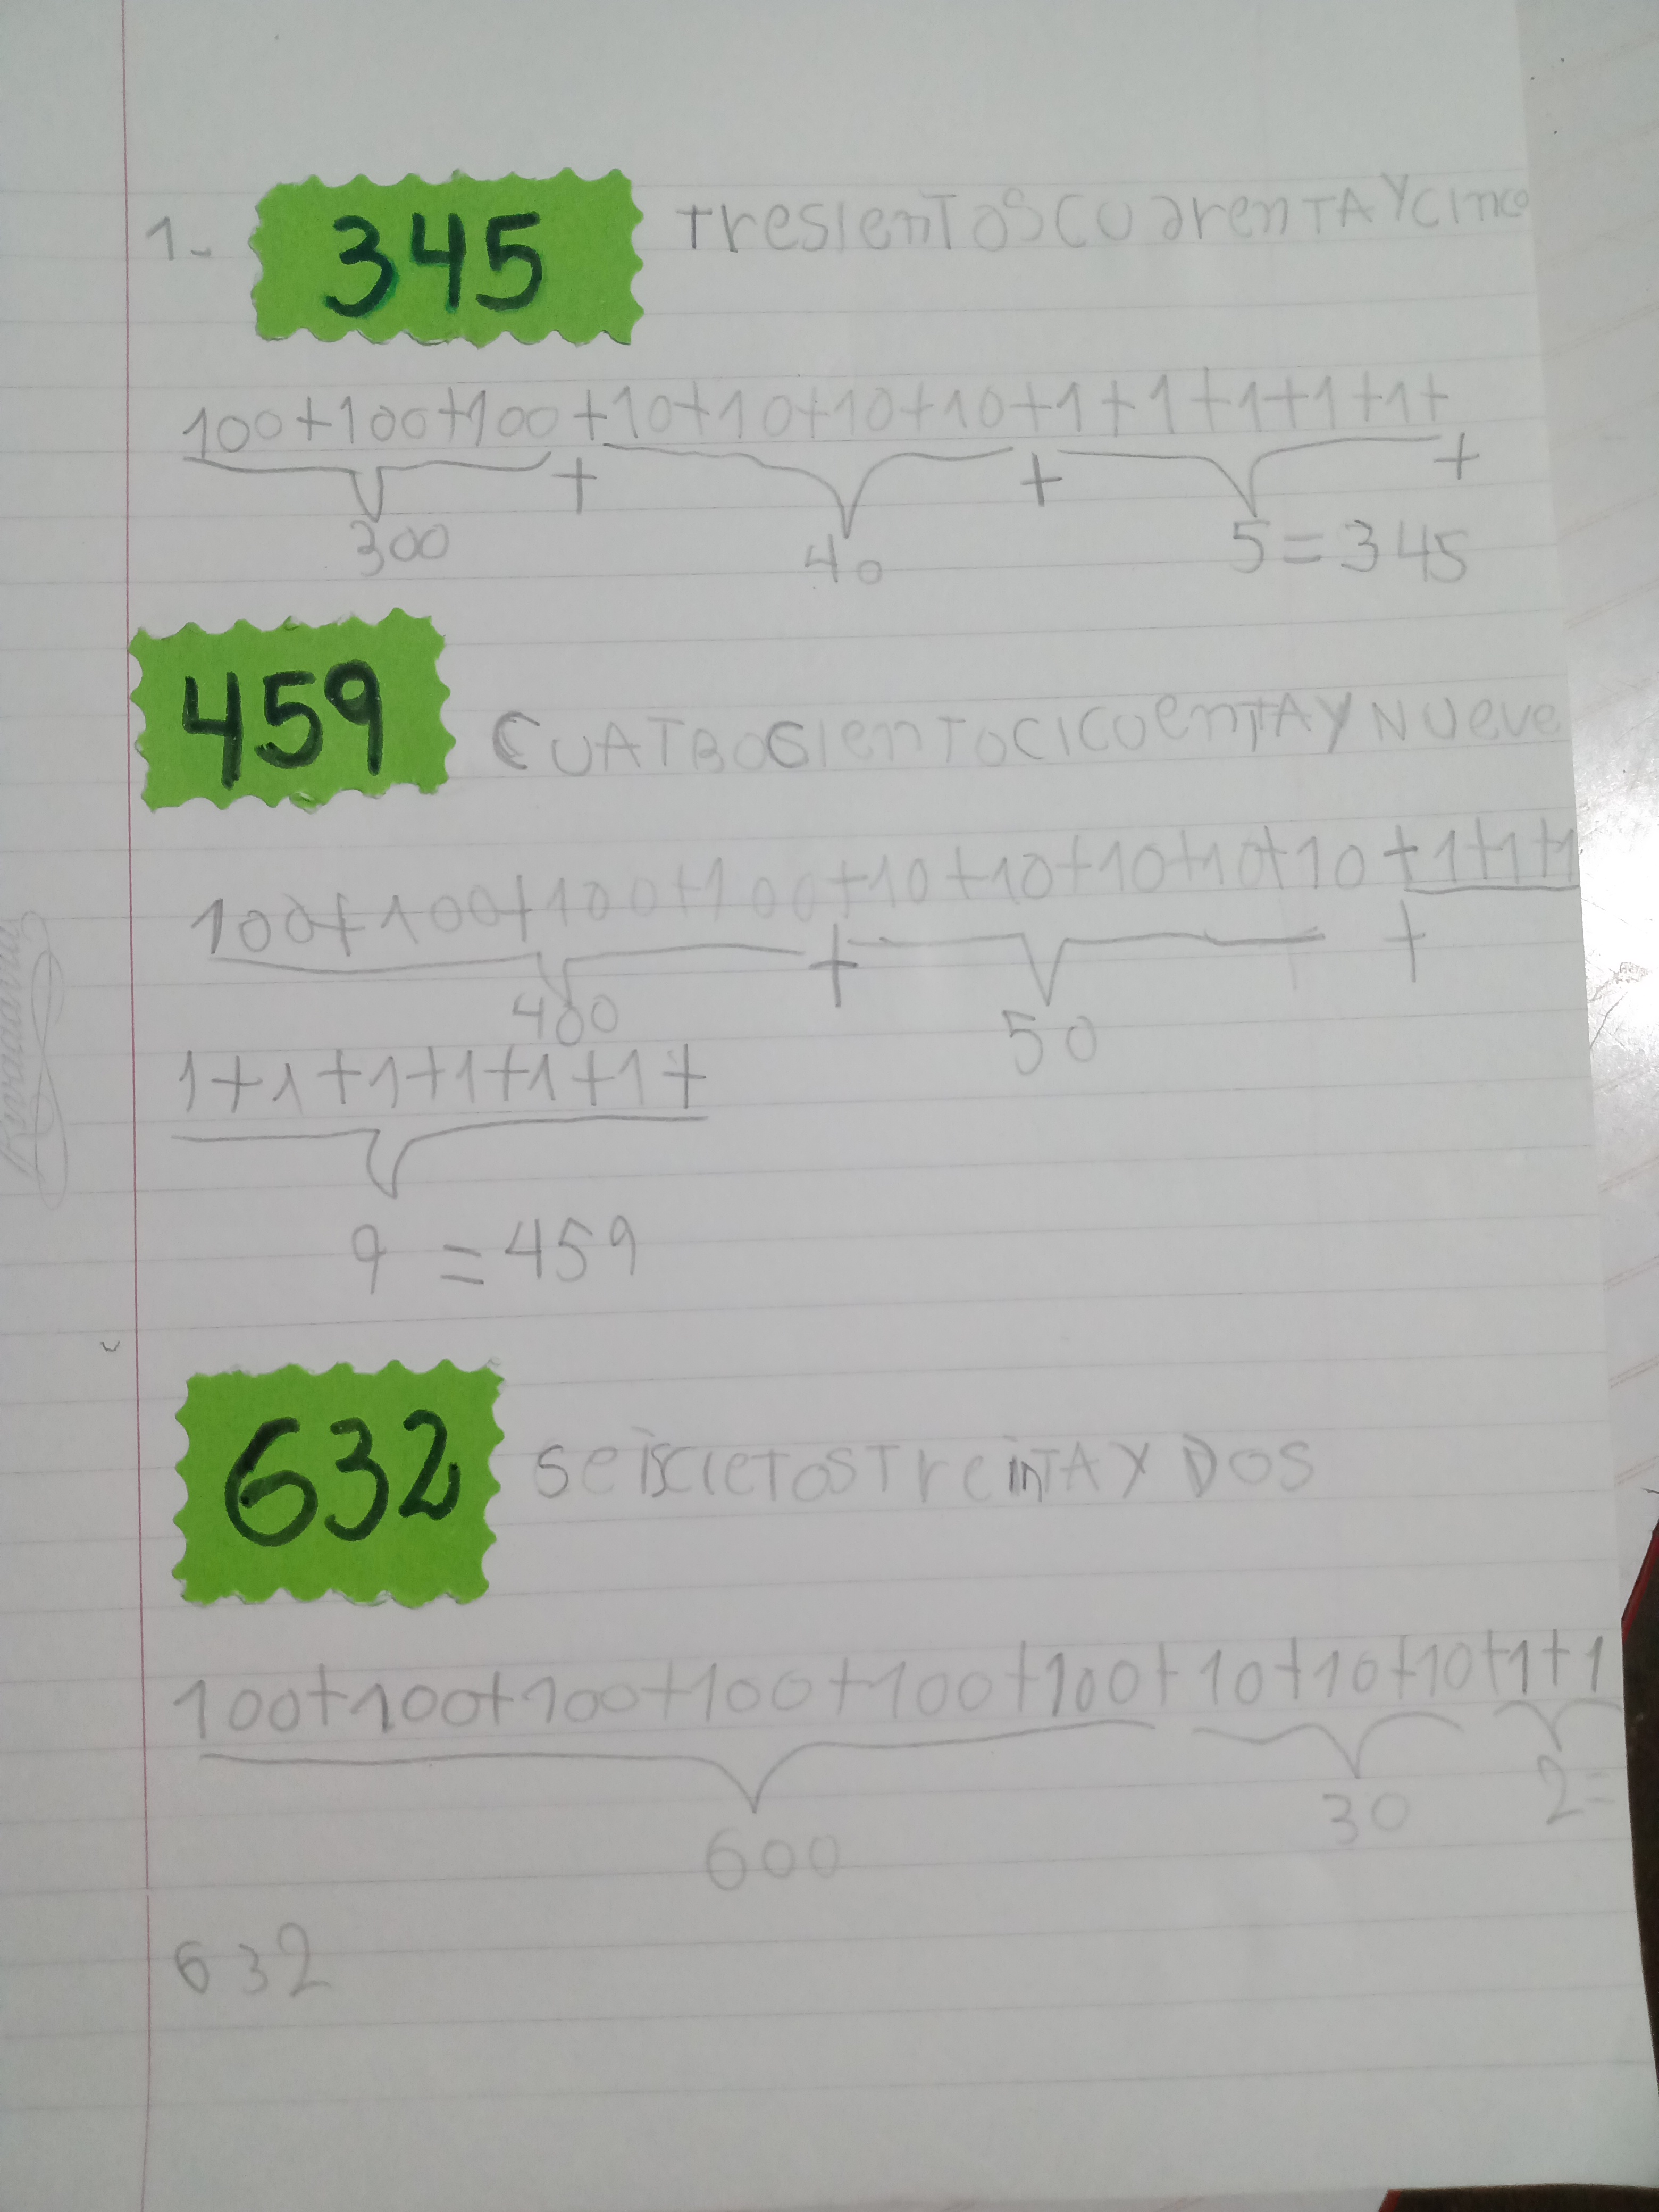 1- 345 tresientos cuarentAYcinco
100+100+100+10+10+10+10+1+1+1+1+1+
+ + +
300 40 5=345
459 CUATROSIenTOCICUenTAYNUeve
100+100+100+100+10+10+10+10+10+1+1+1
+ +
400 50
1+1+1+1+1+1+
9 = 459
632 SeiscieTosTreinTAYDOS
100+100+100+100+100+100+10+10+10+1+1
600 30 2=
632
Rivadavia